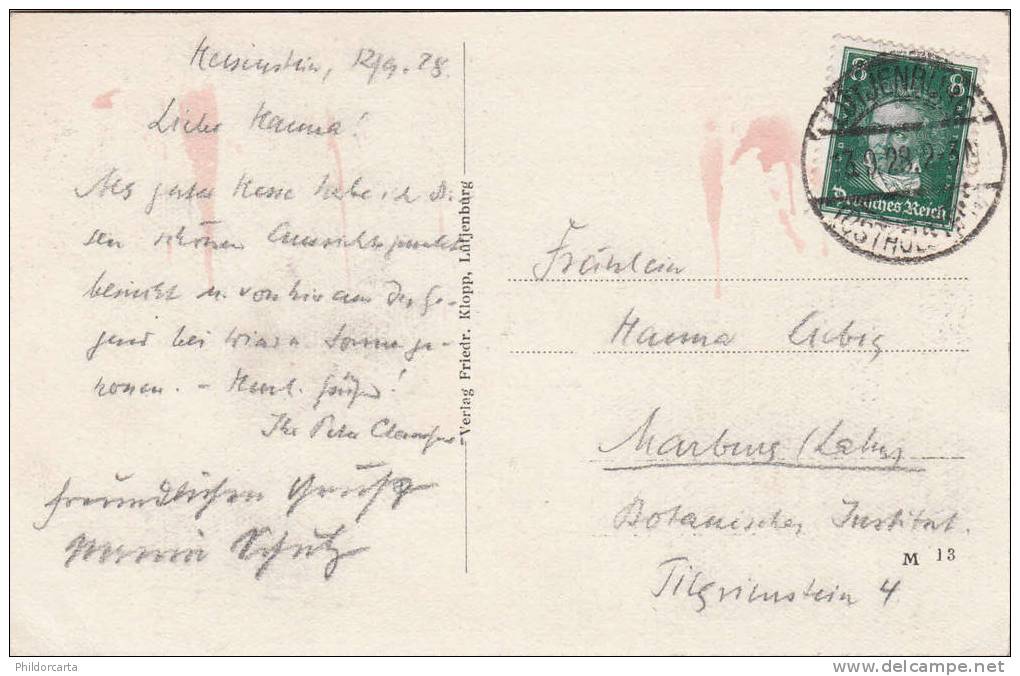 Hessenstein, 12/9. 28.
Liebe Hanna!
Als guter Hesse habe ich die-
sen schönen Aussichtspunkt
besucht u. von hier aus die Ge-
gend bei
nossen. - Herzl. Grüße!
Ihr Peter
freundlichen Gruß
Schulz
Verlag Friedr. Klopp, Lütjenburg
8 8
Deutsches Reich
LÜTJENBURG
9.28.
(OSTHOLST
Fräulein
Hanna
Marburg (Lahn)
Botanisches Institut.
Pilgrimstein 4
M 13
Phildorcarta
www.delcampe.net